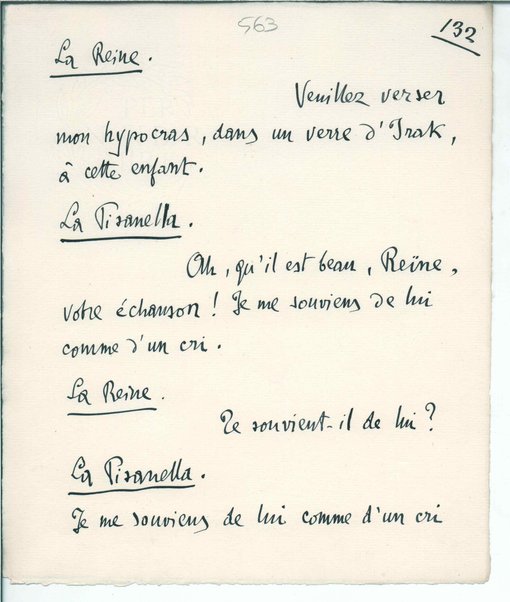 563
132
La Reine.
Veuillez verser
mon hypocras, dans un verre d'Irak,
à cette enfant.
La Pisanella.
Oh, qu'il est beau, Reïne,
votre échanson! Je me souviens de lui
comme d'un cri.
La Reine.
Te souvient-il de lui?
La Pisanella.
Je me souviens de lui comme d'un cri